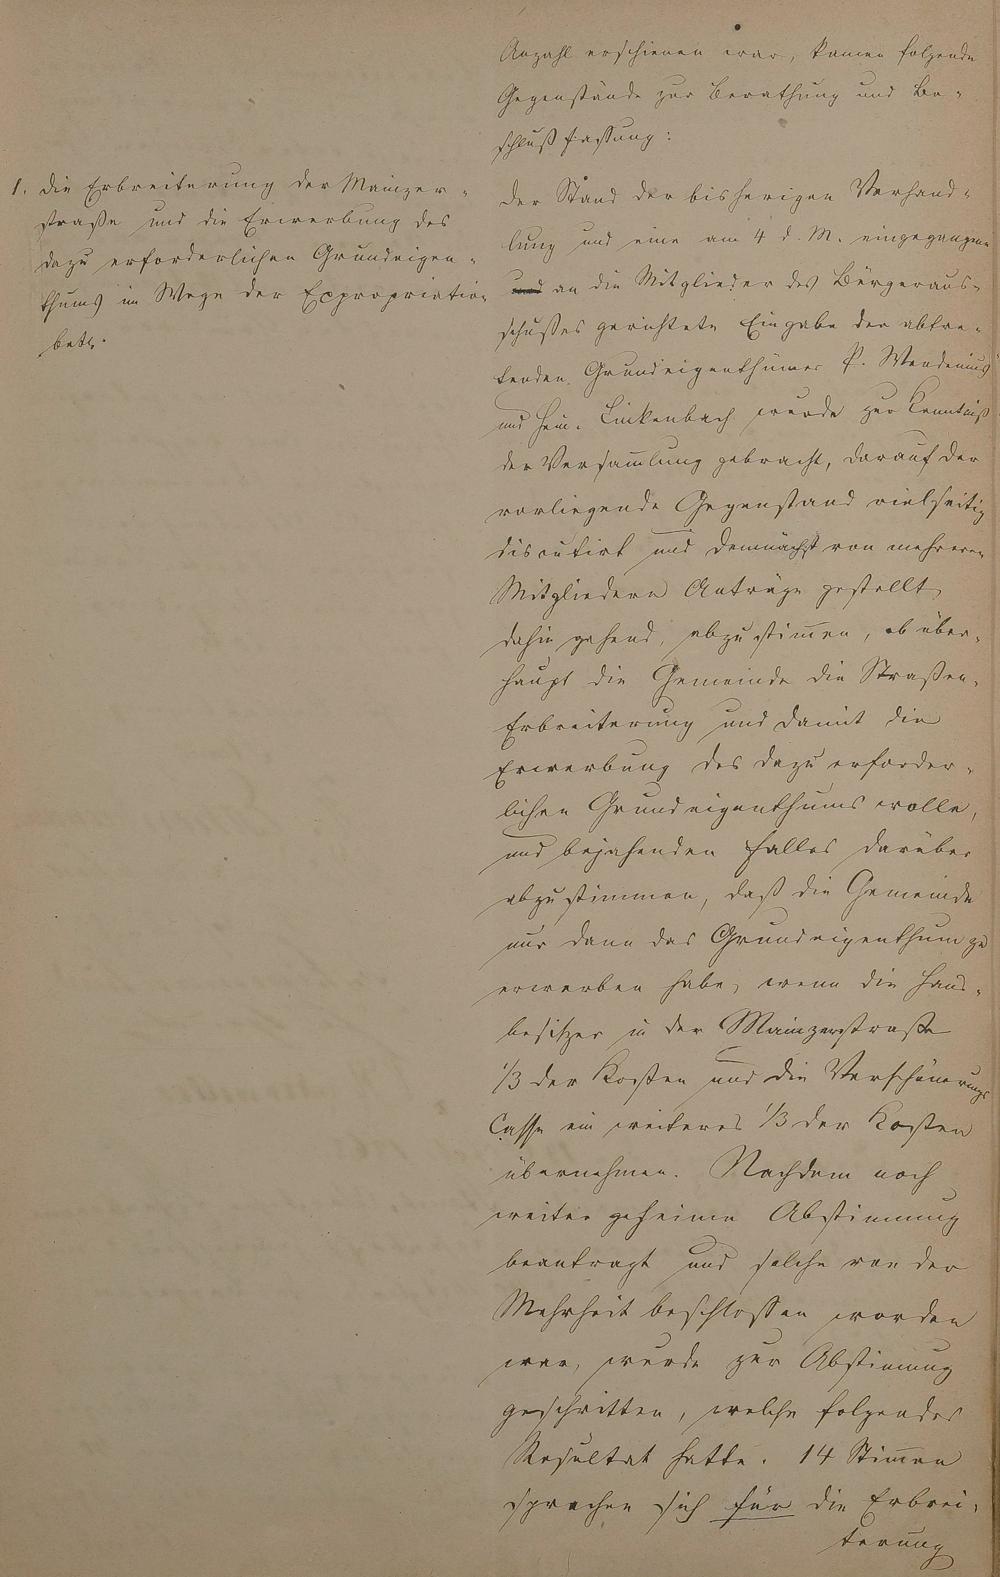 Anzahl erschienen war, kamen folgende
Gegenstände zur Berathung und Be-
schlußfassung:
1. die Erbreiterung der Mainzer-
straße und die Erwerbung des
dazu erforderlichen Grundeigen-
thums im Wege der Expropriation
betr.
Der Stand der bisherigen Verhand-
lung und eine am 4 d. M. eingegangene
an die Mitglieder des Bürgeraus-
schußes gerichtete Eingabe der abtre-
tenden Grundeigenthümer P.
und Hein. Linkenbach wurde zur Kenntniß
der Versam̅lung gebracht, darauf der
vorliegende Gegenstand vielseitig
discutirt und demnächst von mehreren
Mitgliedern Anträge gestellt
dahin gehend, abzustim̅en, ob über-
haupt die Gemeinde die Straßen-
Erbreiterung und damit die
Erwerbung des dazu erforder-
lichen Grundeigenthums wolle,
und bejahenden Falles darüber
abzustimmen, daß die Gemeinde
nur dann das Grundeigenthum zu
erwerben habe, wenn die Haus-
besitzer in der Mainzerstraße
1/3 der Kosten und die Verschönerungs
Casse ein weiteres 1/3 der Kosten
übernehmen. Nachdem noch
weiter geheime Abstimmung
beantragt und solche von der
Mehrheit beschlossen worden
war, wurde zur Abstim̅ung
geschritten, welche folgendes
Resultat hatte. 14 Stim̅en
sprachen sich für die Erbrei-
terung